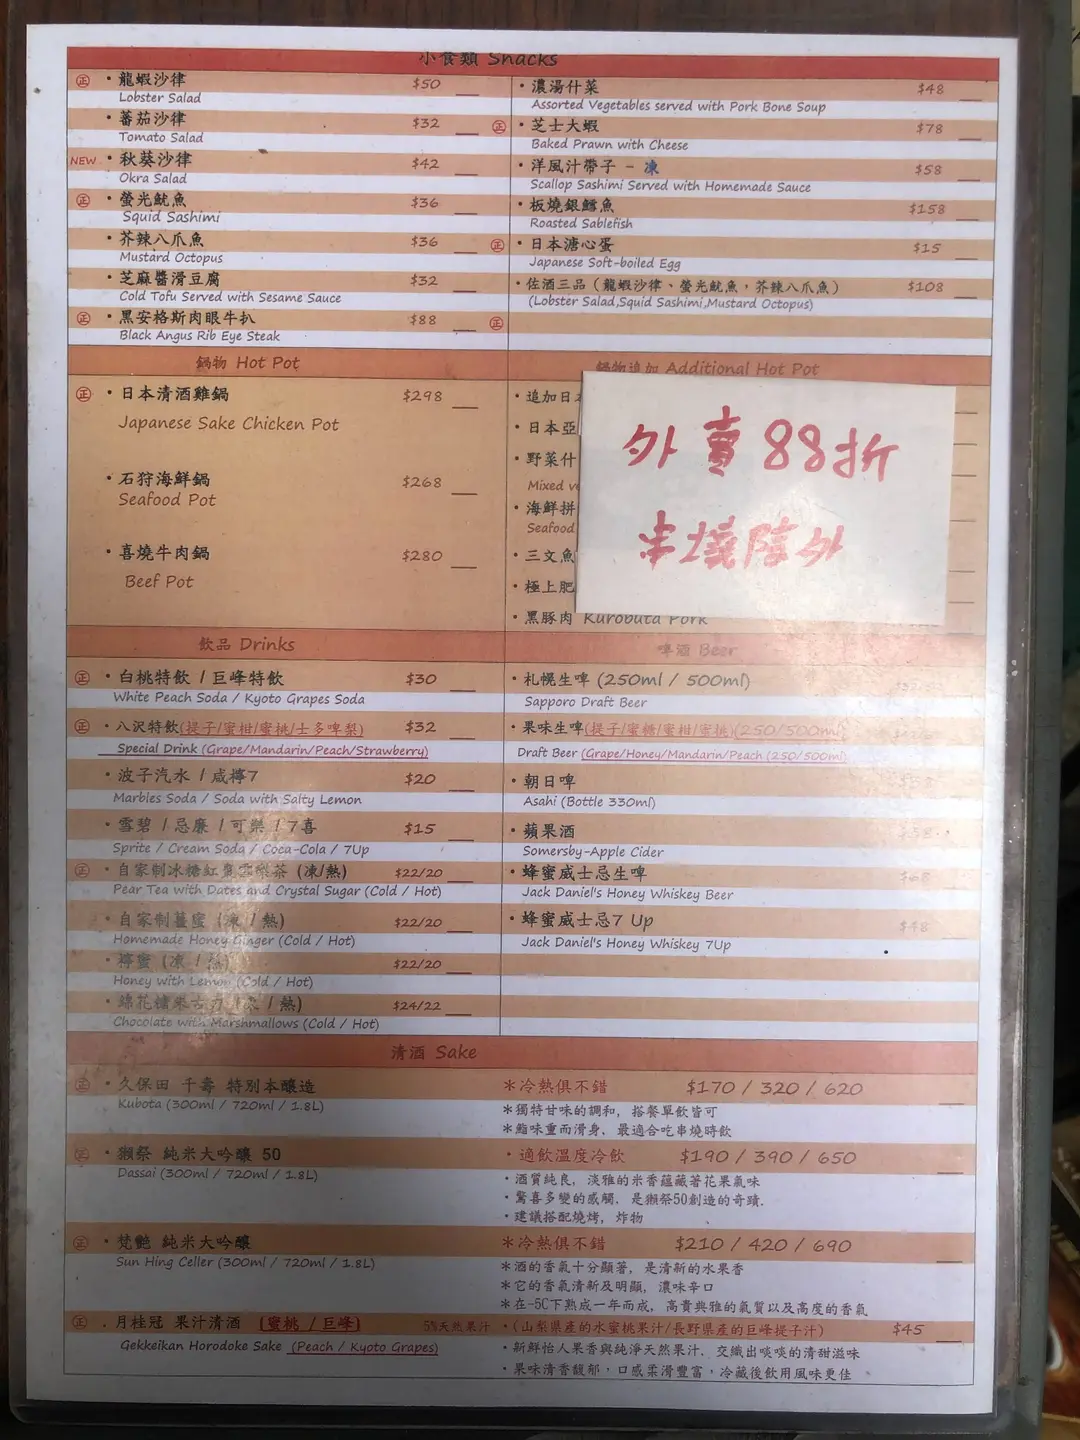 小食類 Snacks
正 · 龍蝦沙律 $50
Lobster Salad
· 蕃茄沙律 $32
Tomato Salad
NEW · 秋葵沙律 $42
Okra Salad
正 · 螢光魷魚 $36
Squid Sashimi
· 芥辣八爪魚 $36
Mustard Octopus
· 芝麻醬滑豆腐 $32
Cold Tofu Served with Sesame Sauce
正 · 黑安格斯肉眼牛扒 $88
Black Angus Rib Eye Steak
· 濃湯什菜 $48
Assorted Vegetables served with Pork Bone Soup
正 · 芝士大蝦 $78
Baked Prawn with Cheese
· 洋風汁帶子 - 凍 $58
Scallop Sashimi Served with Homemade Sauce
· 板燒銀鱈魚 $158
Roasted Sablefish
正 · 日本溏心蛋 $15
Japanese Soft-boiled Egg
· 佐酒三品（龍蝦沙律、螢光魷魚，芥辣八爪魚） $108
(Lobster Salad,Squid Sashimi,Mustard Octopus)
正
鍋物 Hot Pot
正 · 日本清酒雞鍋 $298
Japanese Sake Chicken Pot
· 石狩海鮮鍋 $268
Seafood Pot
· 喜燒牛肉鍋 $280
Beef Pot
鍋物追加 Additional Hot Pot
· 追加日
· 日本亞
· 野菜什
Mixed
· 海鮮拼
Seafood
· 三文魚
· 極上肥
· 黑豚肉 Kurobuta Pork
外賣88折
串燒除外
飲品 Drinks
正 · 白桃特飲 / 巨峰特飲 $30
White Peach Soda / Kyoto Grapes Soda
正 · 八沢特飲(提子/蜜柑/蜜桃/士多啤梨) $32
Special Drink (Grape/Mandarin/Peach/Strawberry)
· 波子汽水 / 咸檸7 $20
Marbles Soda / Soda with Salty Lemon
· 雪碧 / 忌廉 / 可樂 / 7喜 $15
Sprite / Cream Soda / Coca-Cola / 7Up
正 · 自家制冰糖紅棗雪梨茶 (凍/熱) $22/20
Pear Tea with Dates and Crystal Sugar (Cold / Hot)
· 自家制薑蜜 (凍 / 熱) $22/20
Homemade Honey Ginger (Cold / Hot)
· 檸蜜 (凍 / 熱) $22/20
Honey with Lemon (Cold / Hot)
· 綿花糖朱古力 (凍 / 熱) $24/22
Chocolate with Marshmallows (Cold / Hot)
啤酒 Beer
· 札幌生啤 (250ml / 500ml)
Sapporo Draft Beer
· 果味生啤(提子/蜜糖/蜜柑/蜜桃)(250/500ml)
Draft Beer (Grape/Honey/Mandarin/Peach (250/500ml)
· 朝日啤
Asahi (Bottle 330ml)
· 蘋果酒
Somersby-Apple Cider
· 蜂蜜威士忌生啤 $68
Jack Daniel's Honey Whiskey Beer
· 蜂蜜威士忌7 Up $48
Jack Daniel's Honey Whiskey 7Up
清酒 Sake
正 · 久保田 千壽 特別本釀造 *冷熱俱不錯 $170 / 320 / 620
Kubota (300ml / 720ml / 1.8L)
*獨特甘味的調和，搭餐單飲皆可
*鮨味重而滑身，最適合吃串燒時飲
正 · 獺祭 純米大吟釀 50 · 適飲溫度冷飲 $190 / 390 / 650
Dassai (300ml / 720ml / 1.8L)
· 酒質純良，淡雅的米香蘊藏著花果氣味
· 驚喜多變的感觸，是獺祭50創造的奇蹟.
· 建議搭配燒烤，炸物
正 · 梵艷 純米大吟釀 *冷熱俱不錯 $210 / 420 / 690
Sun Hing Celler (300ml / 720ml / 1.8L)
*酒的香氣十分顯著，是清新的水果香
*它的香氣清新及明顯，濃味辛口
*在-5C下熟成一年而成，高貴典雅的氣質以及高度的香氣
正 . 月桂冠 果汁清酒 (蜜桃 / 巨峰) 5%天然果汁 · (山梨県産的水蜜桃果汁/長野県産的巨峰提子汁) $45
Gekkeikan Horodoke Sake (Peach / Kyoto Grapes)
· 新鮮怡人果香與純淨天然果汁．交織出啖啖的清甜滋味
· 果味清香馥郁，口感柔滑豐富，冷藏後飲用風味更佳